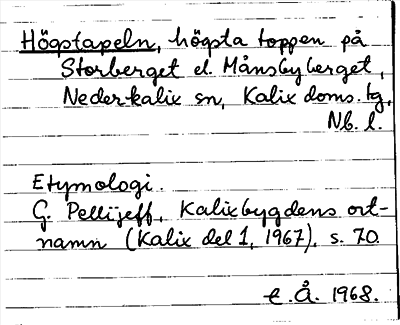 Högstapeln, högsta toppen på
Storberget el. Månsbyberget,
Nederkalix sn, Kalix doms.tg,
Nb. l.
Etymologi.
G. Pellijeff, Kalixbygdens ort-
namn (Kalix del 1, 1967), s. 70.
E. Å. 1968.